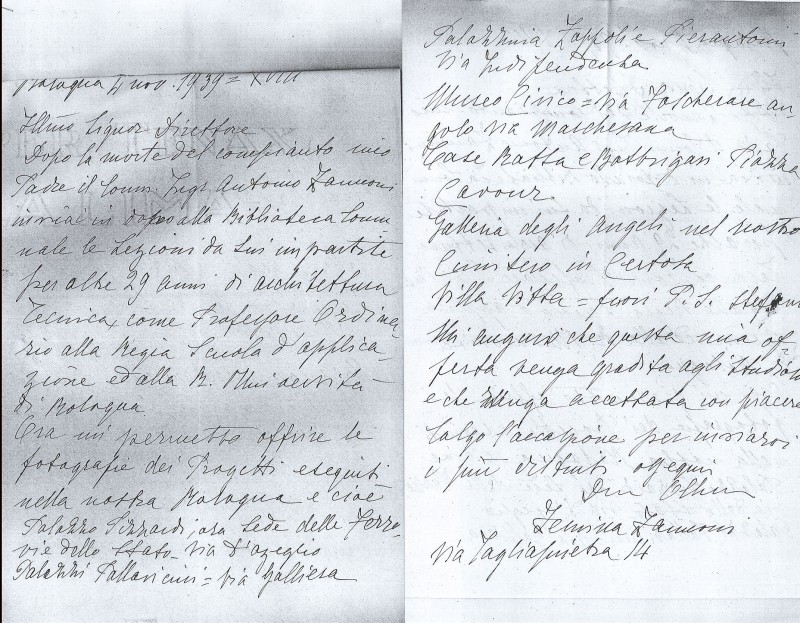 Bologna 4 nov. 1939 = XVIII
Illmo Signor Direttore
Dopo la morte del compianto mio
Padre il Comm. Ingr Antonio Zannoni
inviai in dono alla Biblioteca Comu
nale le Lezioni da Lui impartite
per oltre 29 anni di architettura
Tecnica, come Professore Ordina
rio alla Regia Scuola d'applica
zione ed alla R. Università
di Bologna
Ora mi permetto offrire le
fotografie dei Progetti eseguiti
nella nostra Bologna e cioè
Palazzo Pizzardi, ora sede delle Ferro
vie dello Stato - Via D'azeglio
Palazzi Pallavicini = Via Galliera
Palazzina Zappoli e Pierantoni
Via Indipendenza
Museo Civico = Via Foscherare an
golo via Marchesana
Case Ratta e Bottrigari Piazza
Cavour
Galleria degli Angeli nel nostro
Cimitero in Certosa
Villa Vitta = fuori P. S. Stefano
Mi auguro che questa mia of=
ferta venga gradita agli studiosi
e che venga accettata con piacere
Colgo l'occasione per inviarvi
i più distinti ossequi
Zannoni
via Tagliapietra 14